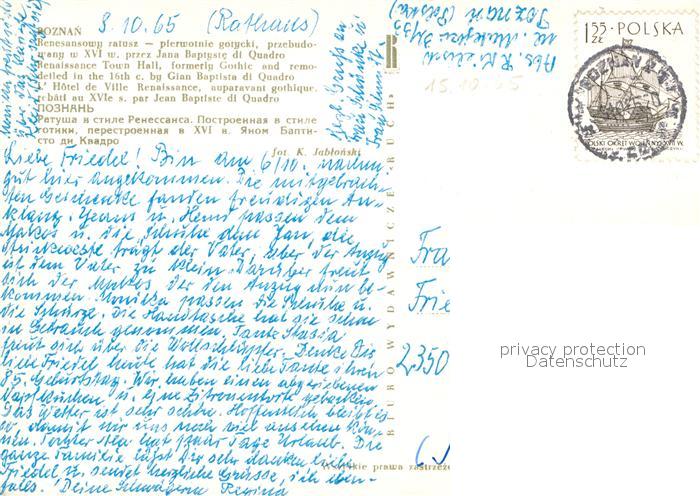 8.10.65 (Rathaus)
POZNAŃ
Renesansowy ratusz — pierwotnie gotycki, przebudo-
wany w XVI w. przez Jana Baptystę di Quadro
Renaissance Town Hall, formerly Gothic and remo-
delled in the 16th c. by Gian Baptista di Quadro
L'Hôtel de Ville Renaissance, auparavant gothique,
rebâti au XVIe s. par Jean Baptiste di Quadro
ПОЗНАНЬ
Ратуша в стиле Ренессанса. Построенная в стиле
готики, перестроенная в XVI в. Яном Бапти-
сто ди Квадро
fot. K. Jabłoński
Liebe Friedel! Bin am 6/10. nachm.
gut hier angekommen. Die mitgebrach-
ten Geschenke fanden freudigen An-
klang. Jeans u. Hemd passen dem
Makos u. die Schuhe dem Jan, die
Strickweste trägt der Vater, aber der Anzug
ist dem Vater zu klein. Darüber freut
sich der Makos, der den Anzug nun be-
kommen. Monika passen die Schuhe u.
die Schürze. Die Handtasche hat sie schon
in Gebrauch genommen. Tante Stasia
freut sich über die Wollschlüpfer. Denke Dir
liebe Friedel heute hat die liebe Tante ihren
85. Geburtstag. Wir haben einen abgeriebenen
Napfkuchen u. eine Zitronentorte gebacken.
Das Wetter ist sehr schön. Hoffentlich bleibt es
so, damit wir uns noch viel ansehen kön-
nen. Tochter hat paar Tage Urlaub. Die
ganze Familie läßt Dir sehr danken liebe
Friedel u. sendet herzliche Grüsse, ich eben-
falls. Deine Schwägerin Regina
Herzl. Grüsse an
Frau
BIURO WYDAWNICZE RUCH
Wszelkie prawa zastrzeżo
Abs. R.
Poznań (Polska)
15.10.65
1.55 ZŁ POLSKA
POLSKI OKRĘT WOJENNY XVII W.
POZNAŃ
Fra
Frie
2350
privacy protection
Datenschutz